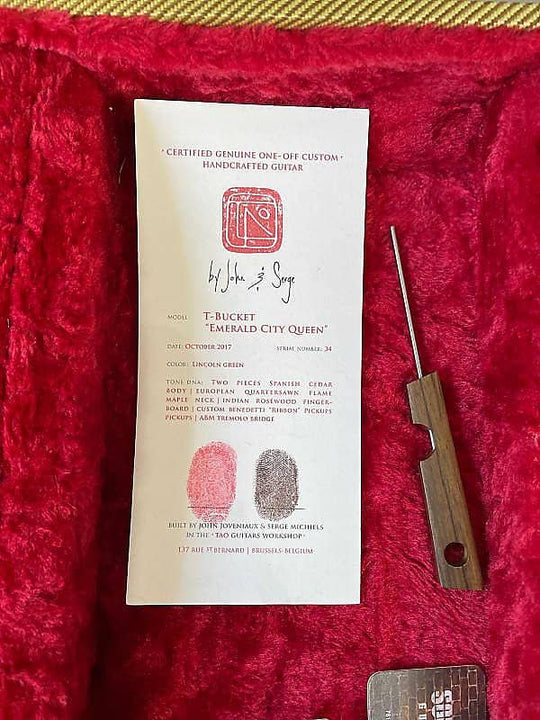 · CERTIFIED GENUINE ONE-OFF CUSTOM ·
HANDCRAFTED GUITAR
by John & Serge
MODEL: T-BUCKET
"EMERALD CITY QUEEN"
DATE: OCTOBER 2017 SERIAL NUMBER: 34
COLOR: LINCOLN GREEN
TONE DNA: TWO PIECES SPANISH CEDAR
BODY | EUROPEAN QUARTERSAWN FLAME
MAPLE NECK | INDIAN ROSEWOOD FINGER-
BOARD | CUSTOM BENEDETTI "RIBBON" PICKUPS
PICKUPS | ABM TREMOLO BRIDGE
BUILT BY JOHN JOVENIAUX & SERGE MICHIELS
IN THE · TAO GUITARS WORKSHOP ·
137 RUE ST BERNARD | BRUSSELS-BELGIUM